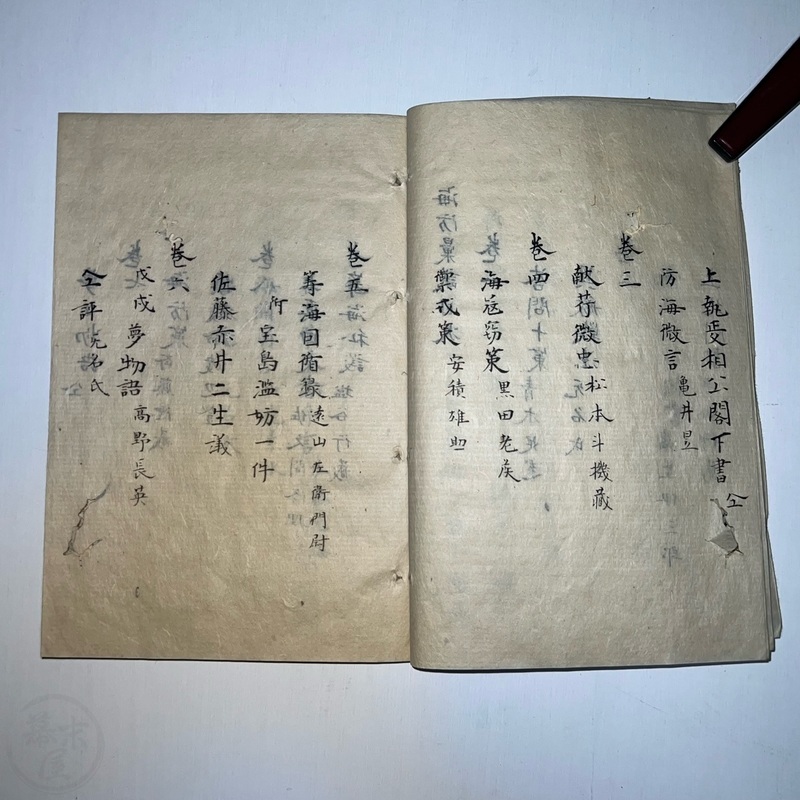 上執政相公閣下書 仝
防海微言 亀井昱
巻三
献芹微忠 松本斗機蔵
巻四
海寇窃策 黒田老侯
禦戎策 安積雄
巻五
籌海因循録 遠山左衛門尉
附 宝島濫妨一件
佐藤赤井二生議
巻六
戊戌夢物語 高野長英
仝評 旡名氏
幕末屋